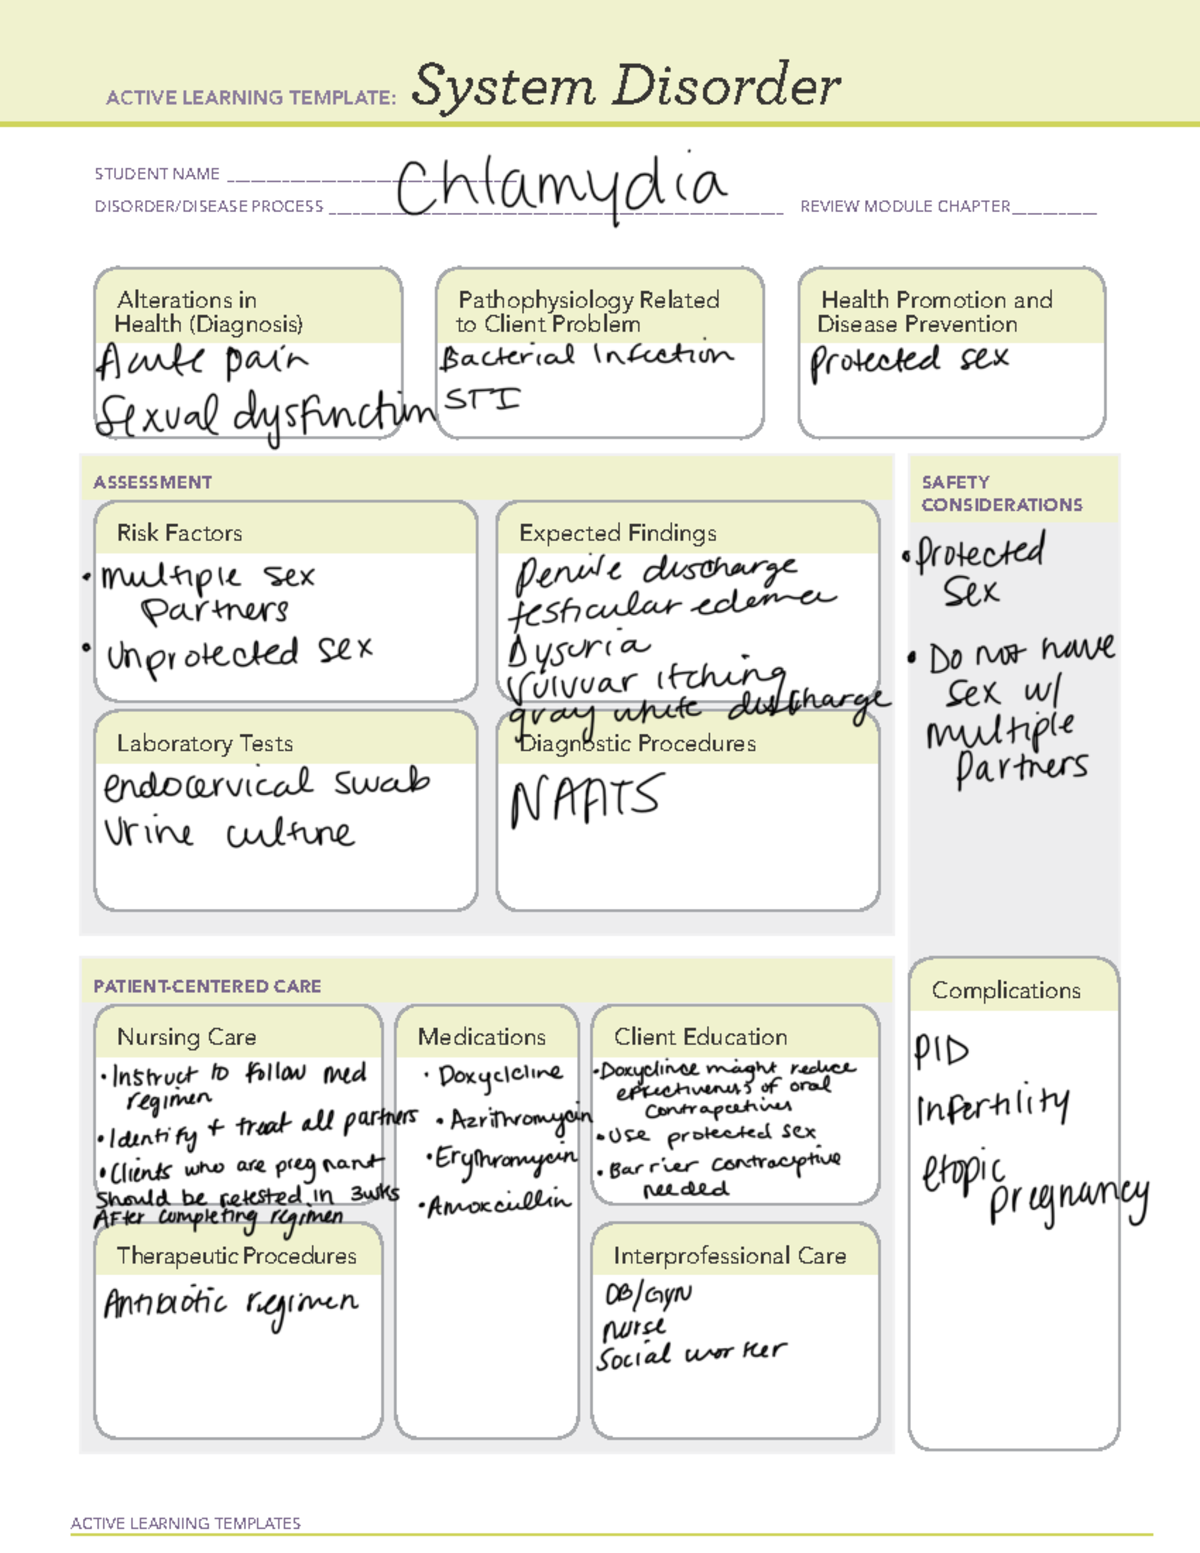 ACTIVE LEARNING TEMPLATE: System Disorder
STUDENT NAME
Chlamydia
DISORDER/DISEASE PROCESS
REVIEW MODULE CHAPTER
Alterations in
Health (Diagnosis)
Acute pain
Sexual dysfunction
Pathophysiology Related
to Client Problem
Bacterial Infection
STI
Health Promotion and
Disease Prevention
Protected sex
ASSESSMENT
Risk Factors
• Multiple sex
Partners
• Unprotected sex
Expected Findings
Penile discharge
testicular edema
Dysuria
Vulvuar itching
gray white discharge
Laboratory Tests
endocervical swab
Urine culture
Diagnostic Procedures
NAATS
SAFETY
CONSIDERATIONS
• Protected
Sex
• Do not have
sex w/
multiple
Partners
PATIENT-CENTERED CARE
Nursing Care
• Instruct to follow med
regimen
• Identify + treat all partners
• Clients who are pregnant
should be retested in 3wks
After completing regimen
Medications
• Doxyclcline
• Azrithromycin
• Erythromycin
• Amoxcillin
Client Education
• Doxyclince might reduce
effectiveness of oral
contrapcetives
• Use protected sex
• Barrier contraceptive
needed
Therapeutic Procedures
Antibiotic regimen
Interprofessional Care
OB/GYN
nurse
Social worker
Complications
PID
Infertility
etopic
pregnancy
ACTIVE LEARNING TEMPLATES